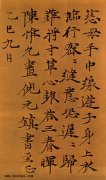 慈母手中線遊子身上衣
臨行密密縫意恐遲遲歸
難將寸草心報答三春暉
陳惟允畫倪元鎮書至正
乙巳九月